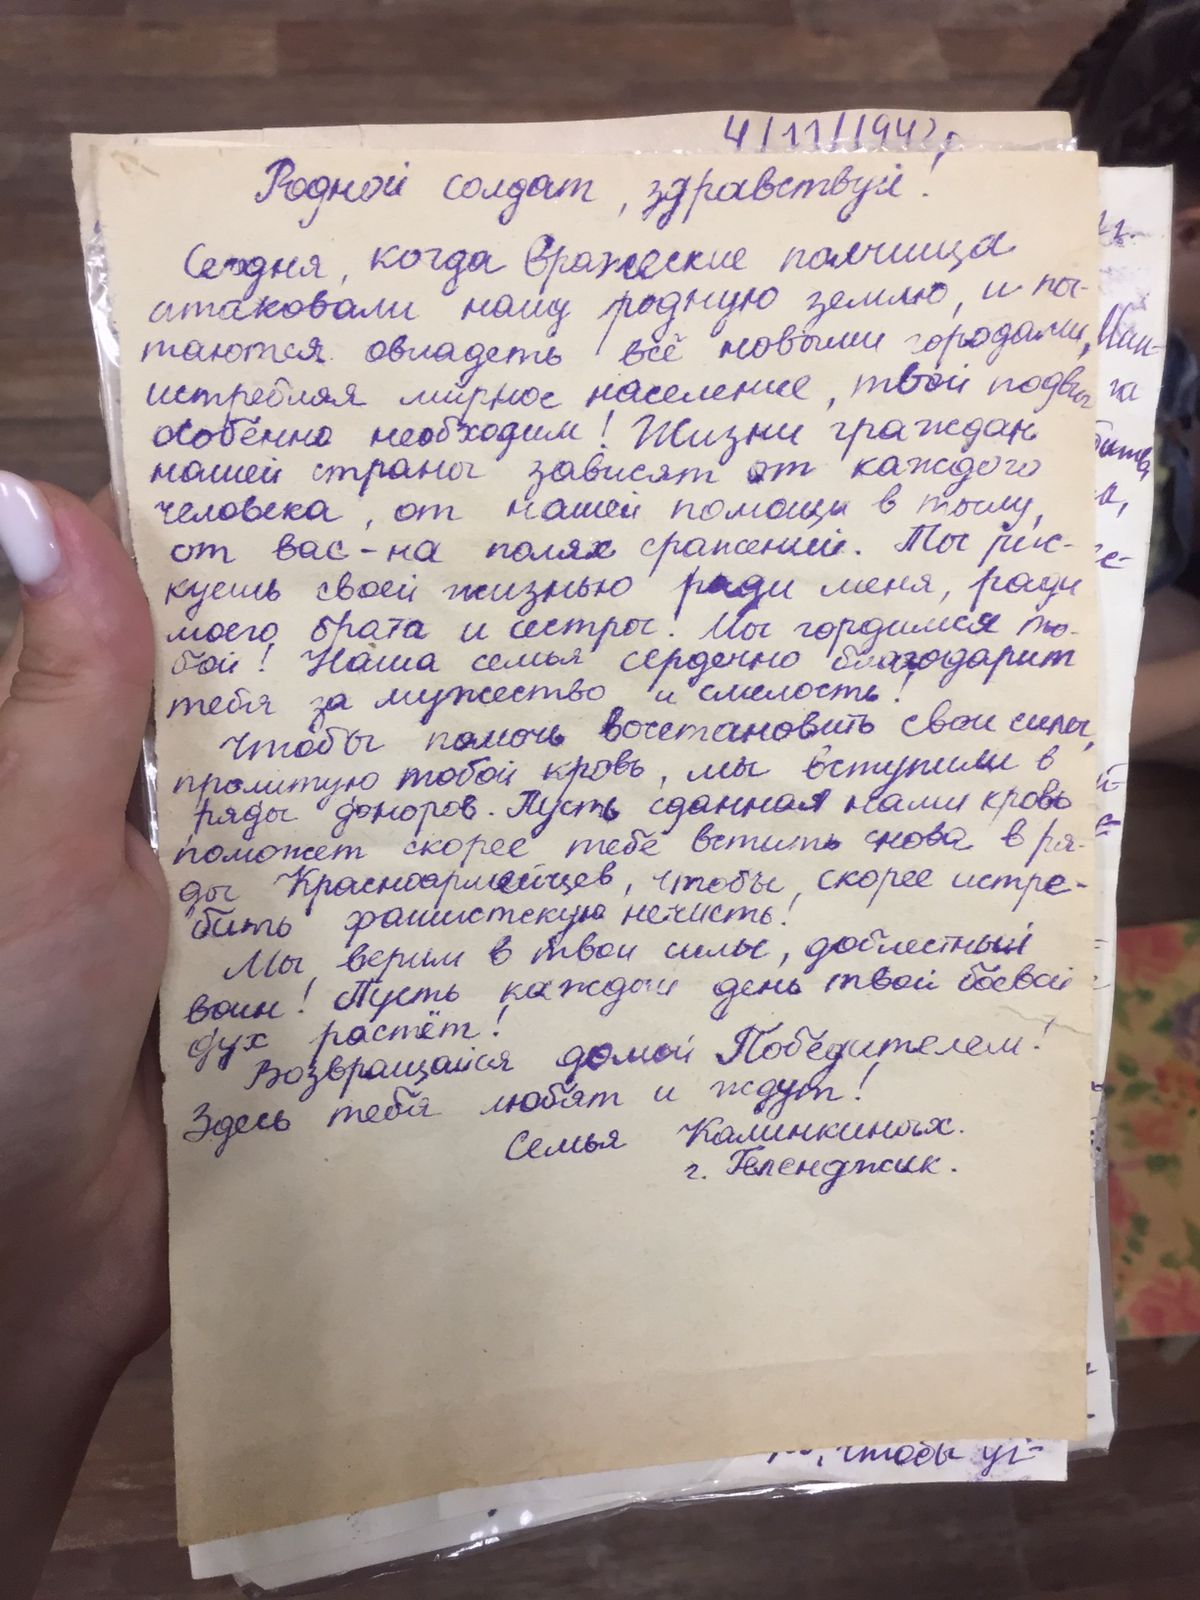 4/11/1942г.
Родной солдат, здравствуй!
Сегодня, когда вражеские полчища
атаковали нашу родную землю, и пы-
таются овладеть всё новыми городами,
истребляя мирное население, твой подвиг
особенно необходим! Жизни граждан
нашей страны зависят от каждого
человека, от нашей помощи в тылу,
от вас - на полях сражений. Ты рис-
куешь своей жизнью ради меня, ради
моего брата и сестры! Мы гордимся то-
бой! Наша семья сердечно благодарит
тебя за мужество и смелость!
Чтобы помочь восстановить свои силы,
пролитую тобой кровь, мы вступили в
ряды доноров. Пусть сданная нами кровь
поможет скорее тебе встить снова в ря-
ды Красноармейцев, чтобы скорее истре-
бить фашистскую нечисть!
Мы верим в твои силы, доблестный
воин! Пусть каждый день твой боевой
дух растёт!
Возвращайся домой Победителем!
Здесь тебя любят и ждут!
Семья Калинкиных.
г. Геленджик.
чтобы